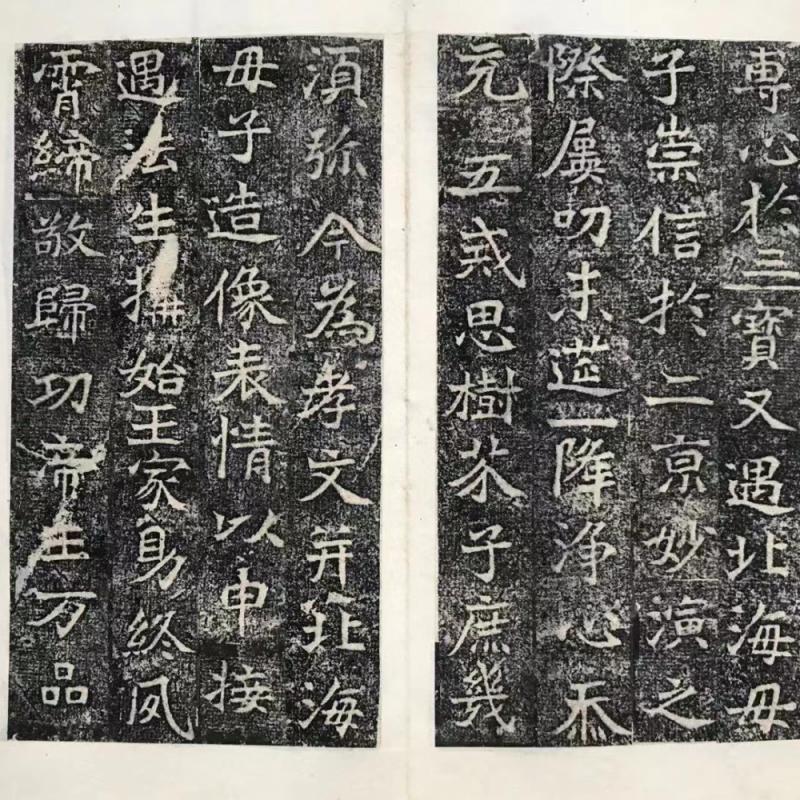 專心於三寶又遇北海母
子崇信於二京妙演之
際屢叨末筵一降淨心忝
充五戒思樹芥子庶幾
須弥今為孝文并北海
母子造像表情以申接
遇法生搆始王家身終夙
霄締敬歸功帝王万品